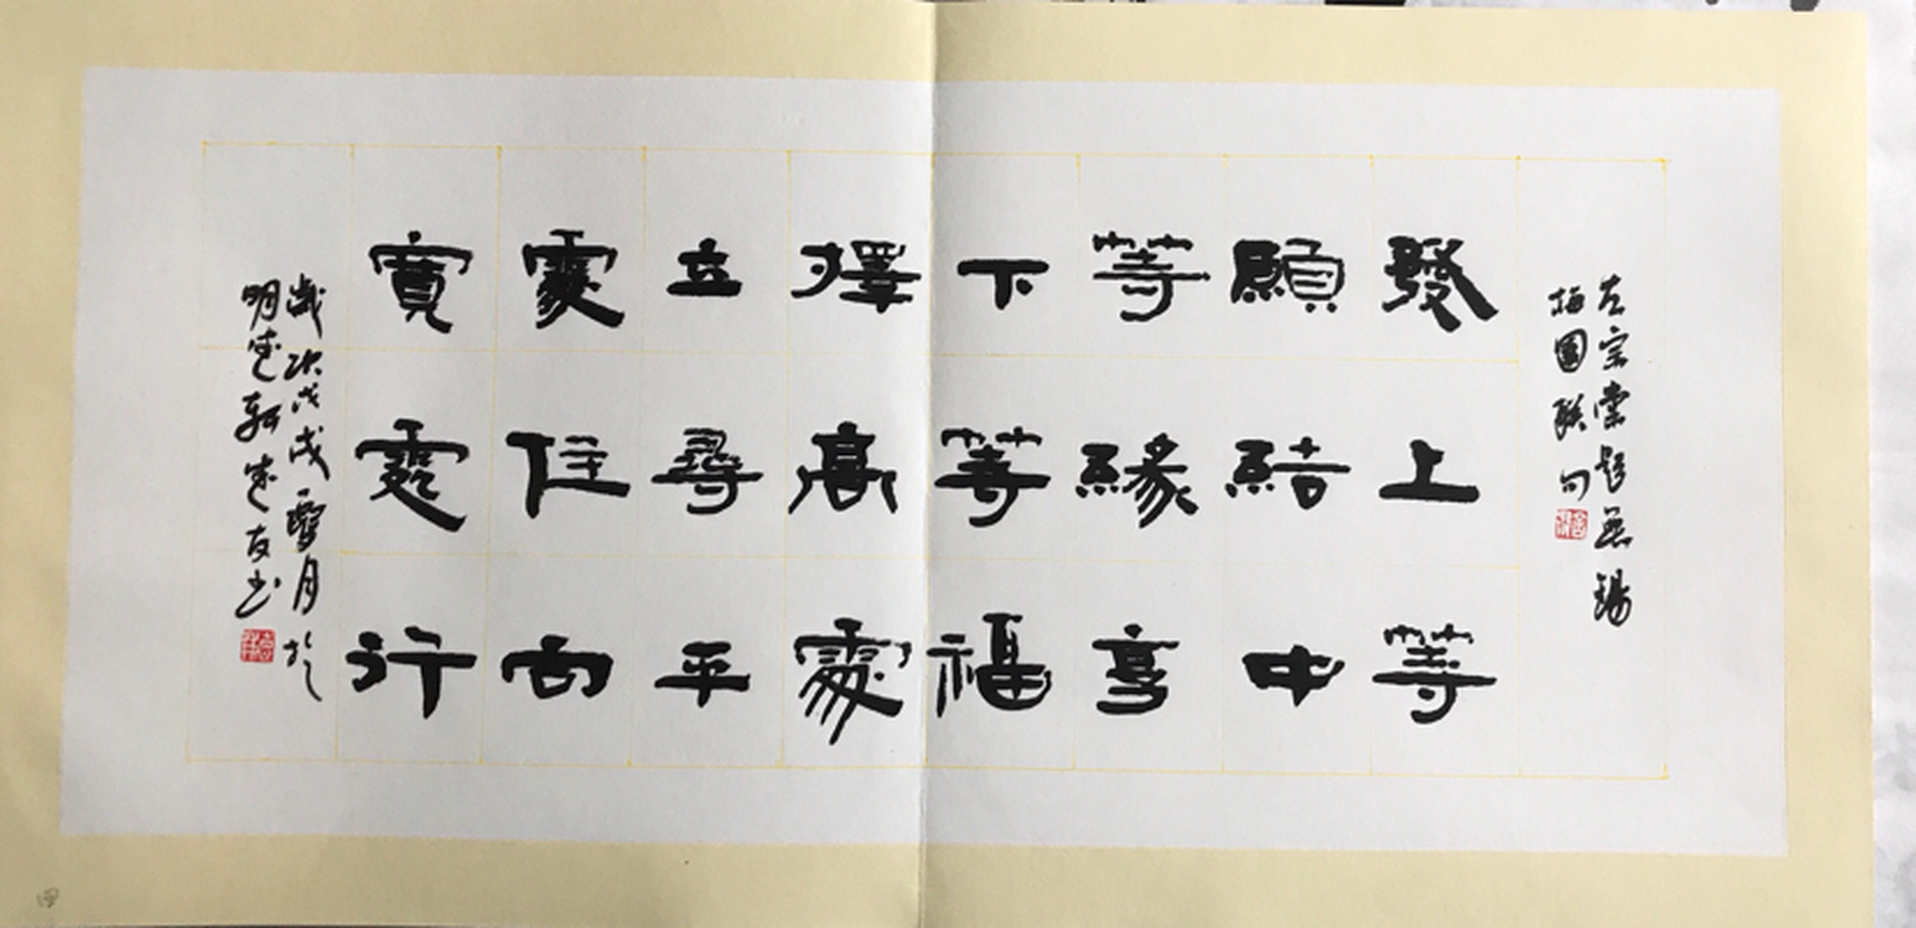 左宗棠題無錫
梅園聯句
發上等
願結中
等緣享
下等福
擇高處
立尋平
處住向
寬處行
歲次戊戌雪月於
明軒友书